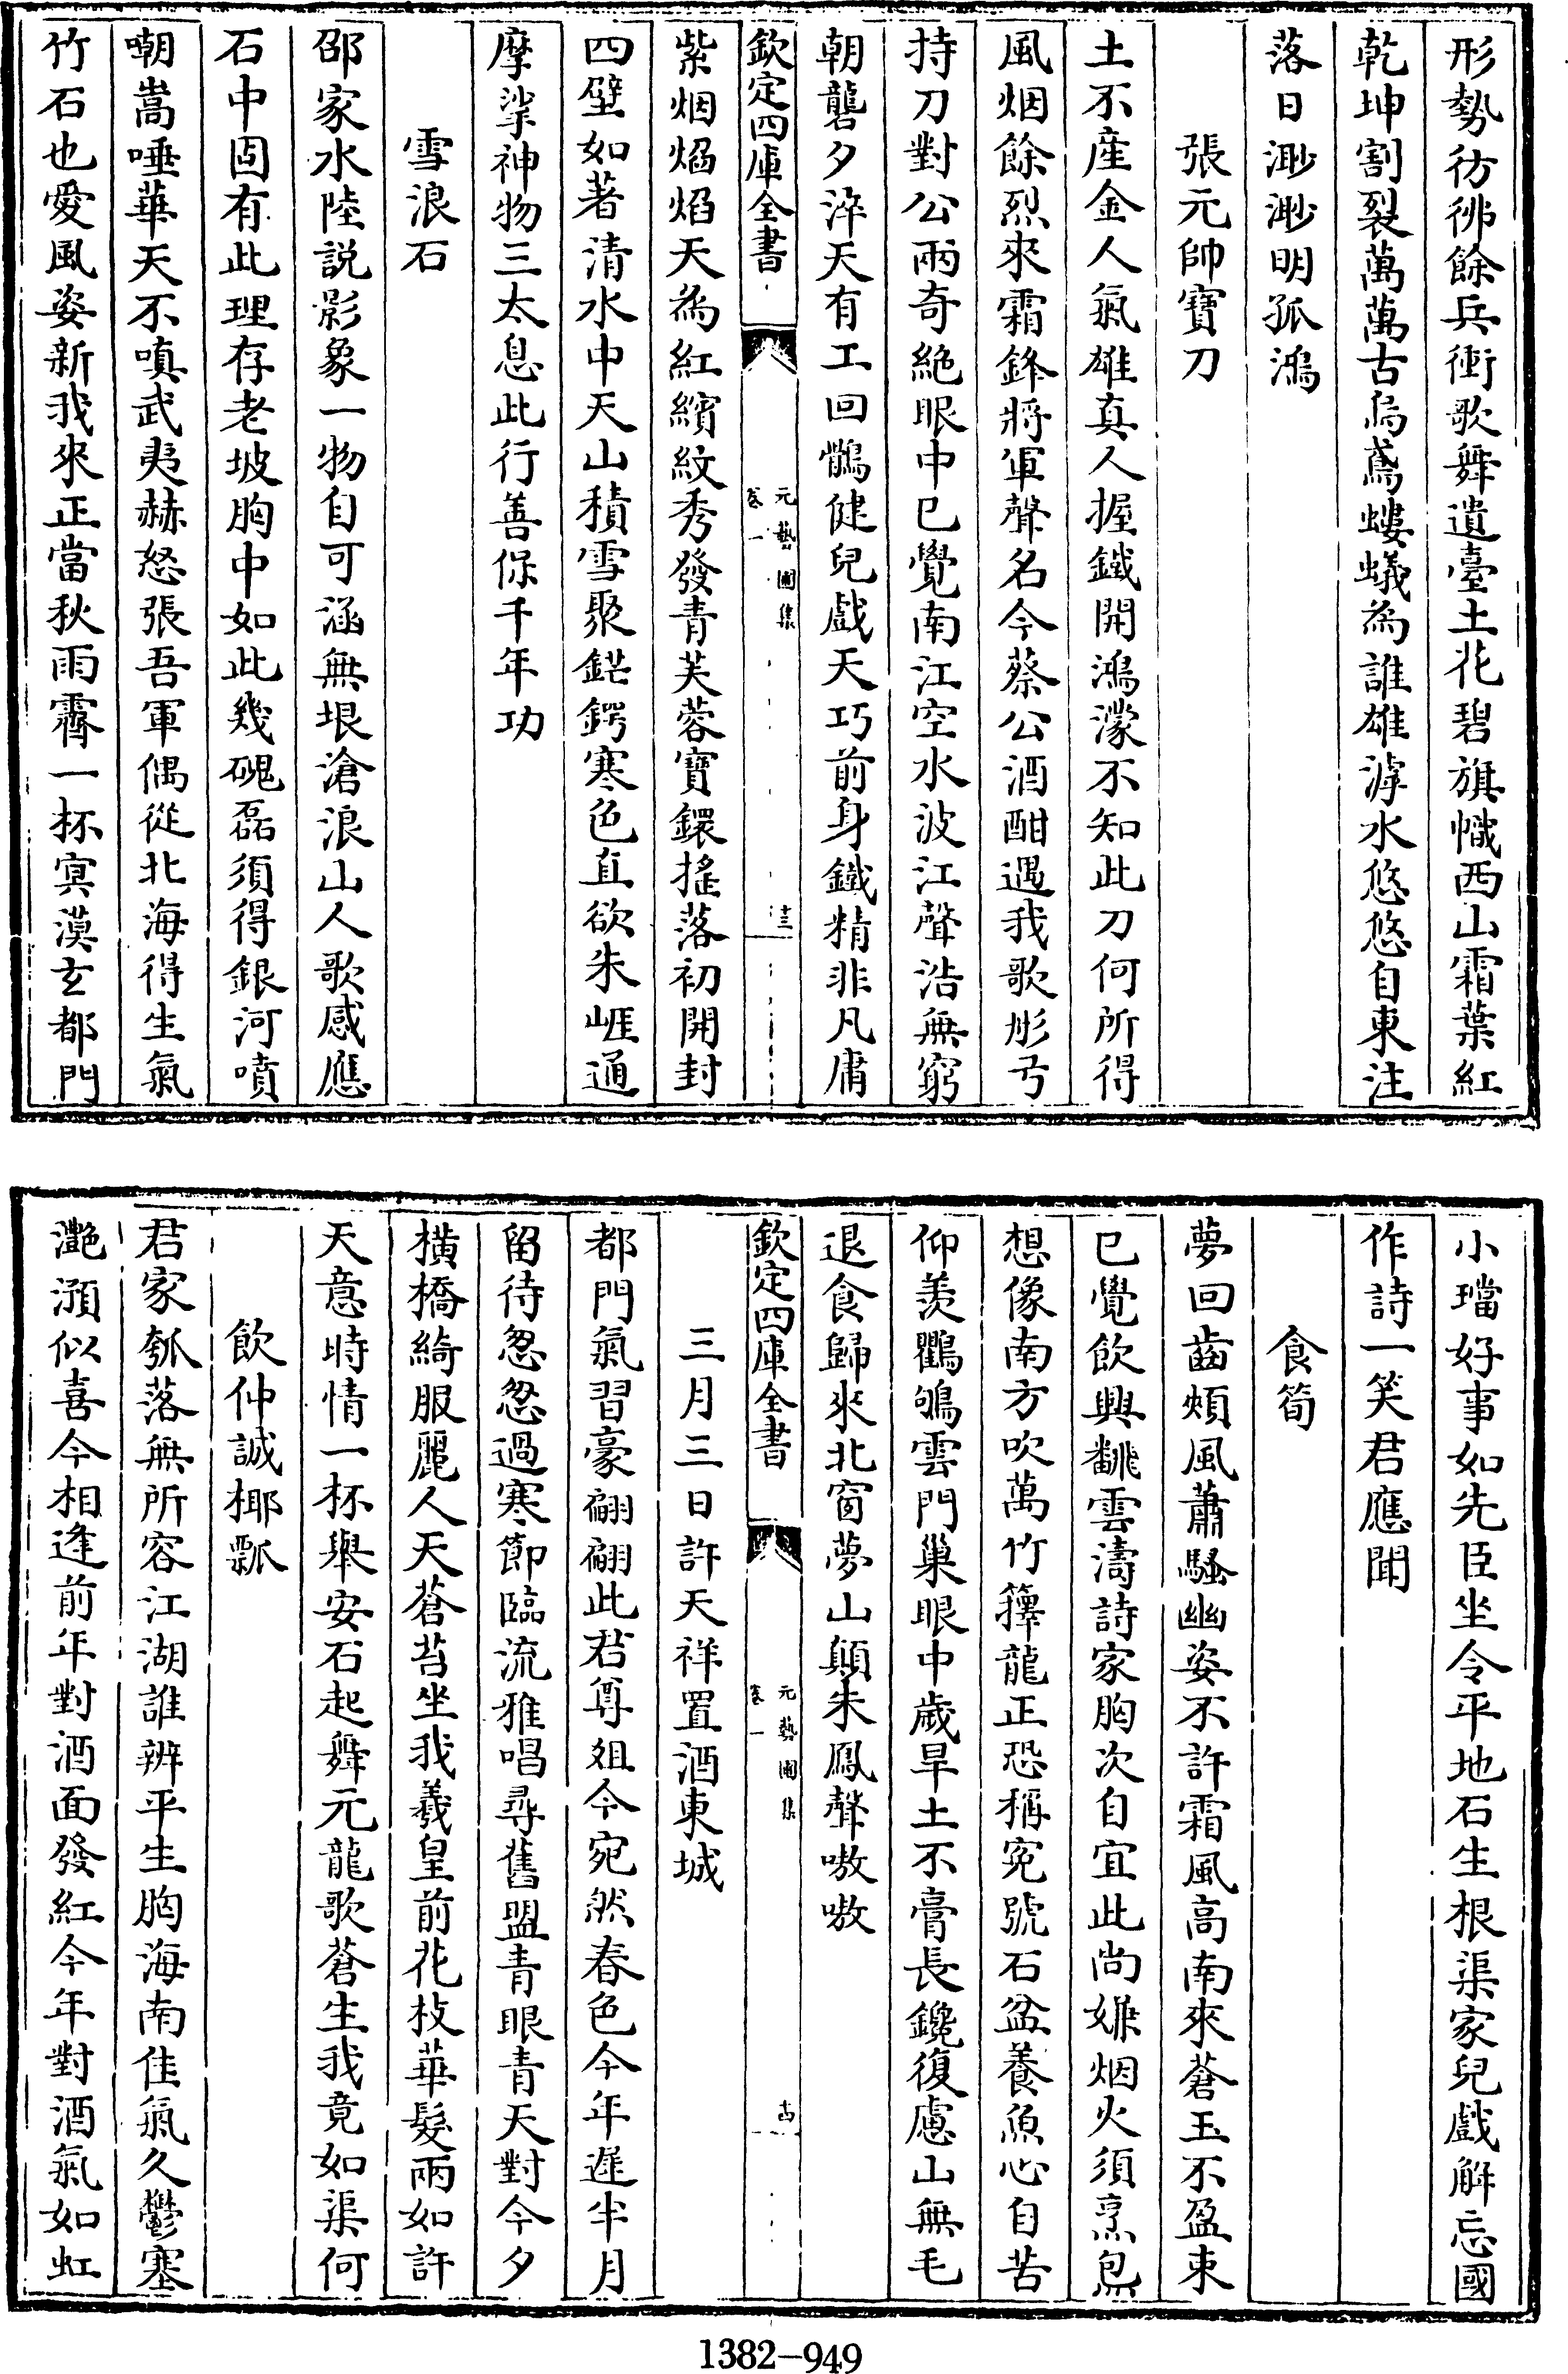 形勢彷彿餘兵衝歌舞遺臺土花碧旗幟西山霜葉紅
乾坤割裂萬萬古烏鳶螻蟻為誰雄滹水悠悠自東注
落日渺渺明孤鴻
張元帥寶刀
土不產金人氣雄真人握鐵開鴻濛不知此刀何所得
風烟餘烈來霜鋒將軍聲名今蔡公酒酣遇我歌彤弓
持刀對公兩奇絕眼中已覺南江空水波江聲浩無窮
朝礱夕淬天有工回鶻健兒戲天巧前身鐵精非凡庸
欽定四庫全書
元藝圃集
卷一
十三
紫烟焰焰天為紅繽紋秀發青芙蓉寶鐶搖落初開封
四壁如著清水中天山積雪聚鋩鍔寒色直欲朱崕通
摩挲神物三太息此行善保千年功
雪浪石
邵家水陸説影象一物自可涵無垠滄浪山人歌感應
石中固有此理存老坡胸中如此幾磈磊須得銀河噴
嘲嵩唾華天不嗔武夷赫怒張吾軍偶從北海得生氣
竹石也愛風姿新我來正當秋雨霽一杯㝠漠玄都門
小璫好事如先臣坐令平地石生根渠家兒戲解忘國
作詩一笑君應聞
食筍
夢回齒頰風蕭騷幽姿不許霜風高南來蒼玉不盈束
已覺飲興飜雲濤詩家胸次自宜此尚嫌烟火須烹炰
想像南方吹萬竹籜龍正恐稱冤號石盆養魚心自苦
仰羨鸜鵒雲門巢眼中歲旱土不膏長鑱復慮山無毛
退食歸來北窗夢山顛朱鳳聲嗷嗷
欽定四庫全書
元藝圃集
卷一
十四
三月三日許天祥置酒東城
都門氣習豪翩翩此君尊俎今宛然春色今年遲半月
留待怱怱過寒節臨流雅唱尋舊盟青眼青天對今夕
橫橋綺服麗人天蒼苔坐我羲皇前花枝華髮兩如許
天意時情一杯舉安石起舞元龍歌蒼生我竟如渠何
飲仲誠椰瓢
君家瓠落無所容江湖誰辨平生胸海南佳氣久鬱塞
灔澦似喜今相逢前年對酒面發紅今年對酒氣如虹
1382-949